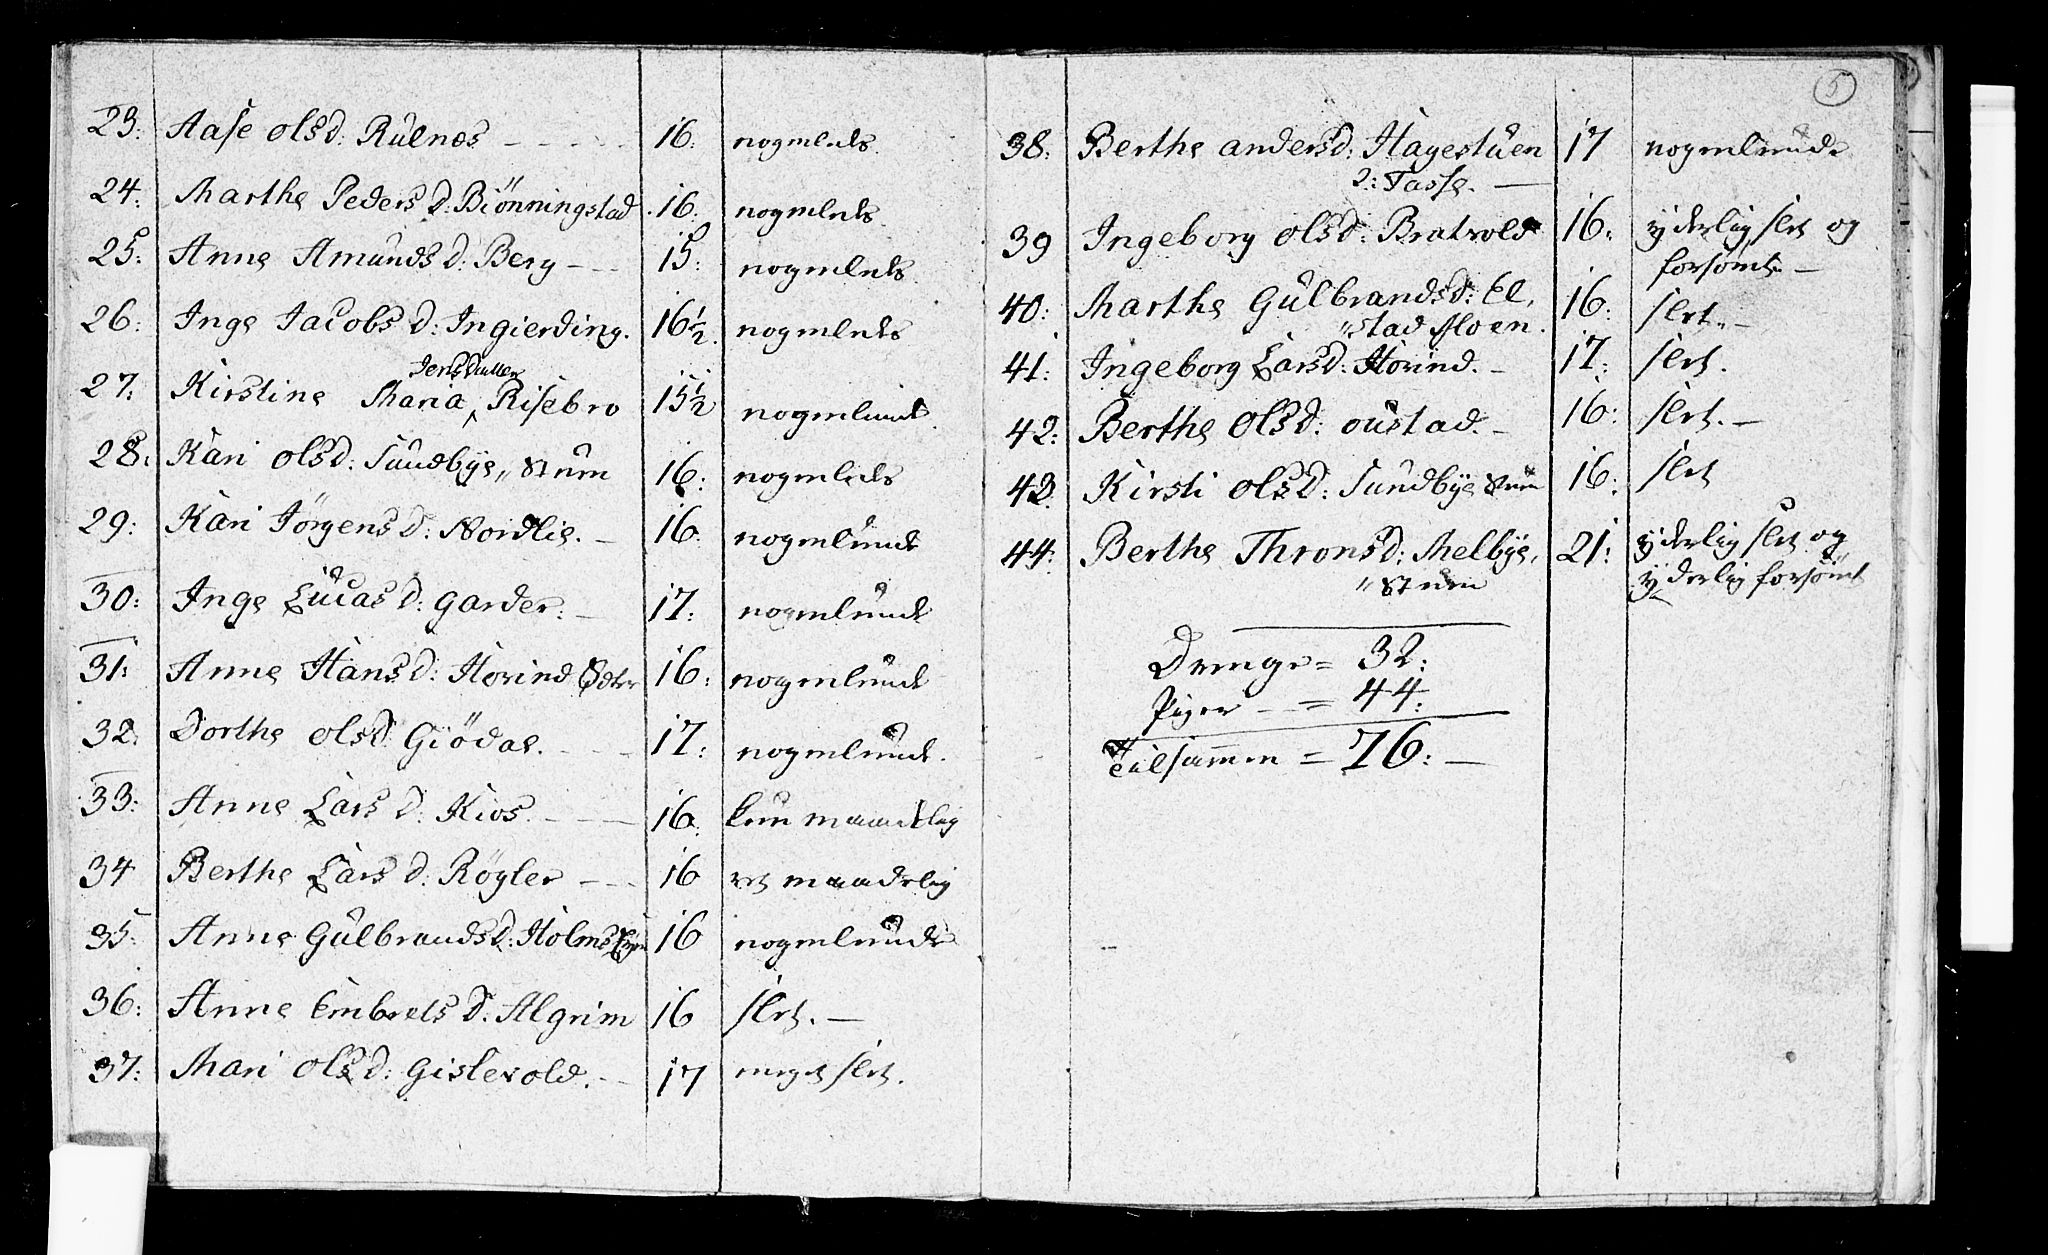 23: Aase Olsd: Rulnes - - - - 16: nogenleds.
24: Marthe Peders D: Biönningstad 16: nogenleds
25: Anne Amunds d: Berg - - - 15: nogenleds.
26: Inge Jacobs d: Ingierding. 16½. nogenleds
Jensdatter
27: Kirstine Maria ^ Risebro 15½ nogenlunde.
28: Kari Olsd: Sundbye, Stuen 16: nogenleds
29: Kari Jörgens d: Nordlie. - 16: nogenlunde
30: Inge Lucas d: Garder: - 17: nogenlunde
31: Anne Hans d: Hovind Östre 16: nogenlunde
32: Dorthe Olsd: Giödae. - - - 17: nogenlunde.
33: Anne Lars d: Kios. - - - 16: kun maadelig
34 Berthe Lars d: Rögler - - - 16 ret maadelig
35: Anne Gulbrandsd: Holms 16 nogenlunde
36: Anne Embrets d: Algrim 16 slet. -
37: Mari Olsd: Gislevold. - - 17 meget slet.
5
38: Berthe Andersd: Hagestuen 17 nogenlunde
2: Tasse. -
39 Ingeborg Olsd: Bratvold 16: yderlig slet og
forsömt. -
40: Marthe Gulbrandsd: El, 16: slet. -
"stad Moen.
41: Ingeborg Larsd: Hovind. - 17: slet.
42: Berthe Olsd: Oustad. - 16: slet. -
43. Kirsti Olsd: Sundbye Stuen 16: slet
44: Berthe Thronsd: Melbye, 21: yderlig slet og
"Stuen yderlig forsömt
Drenge = 32:
Piger - = 44:
Tilsammen = 76: -